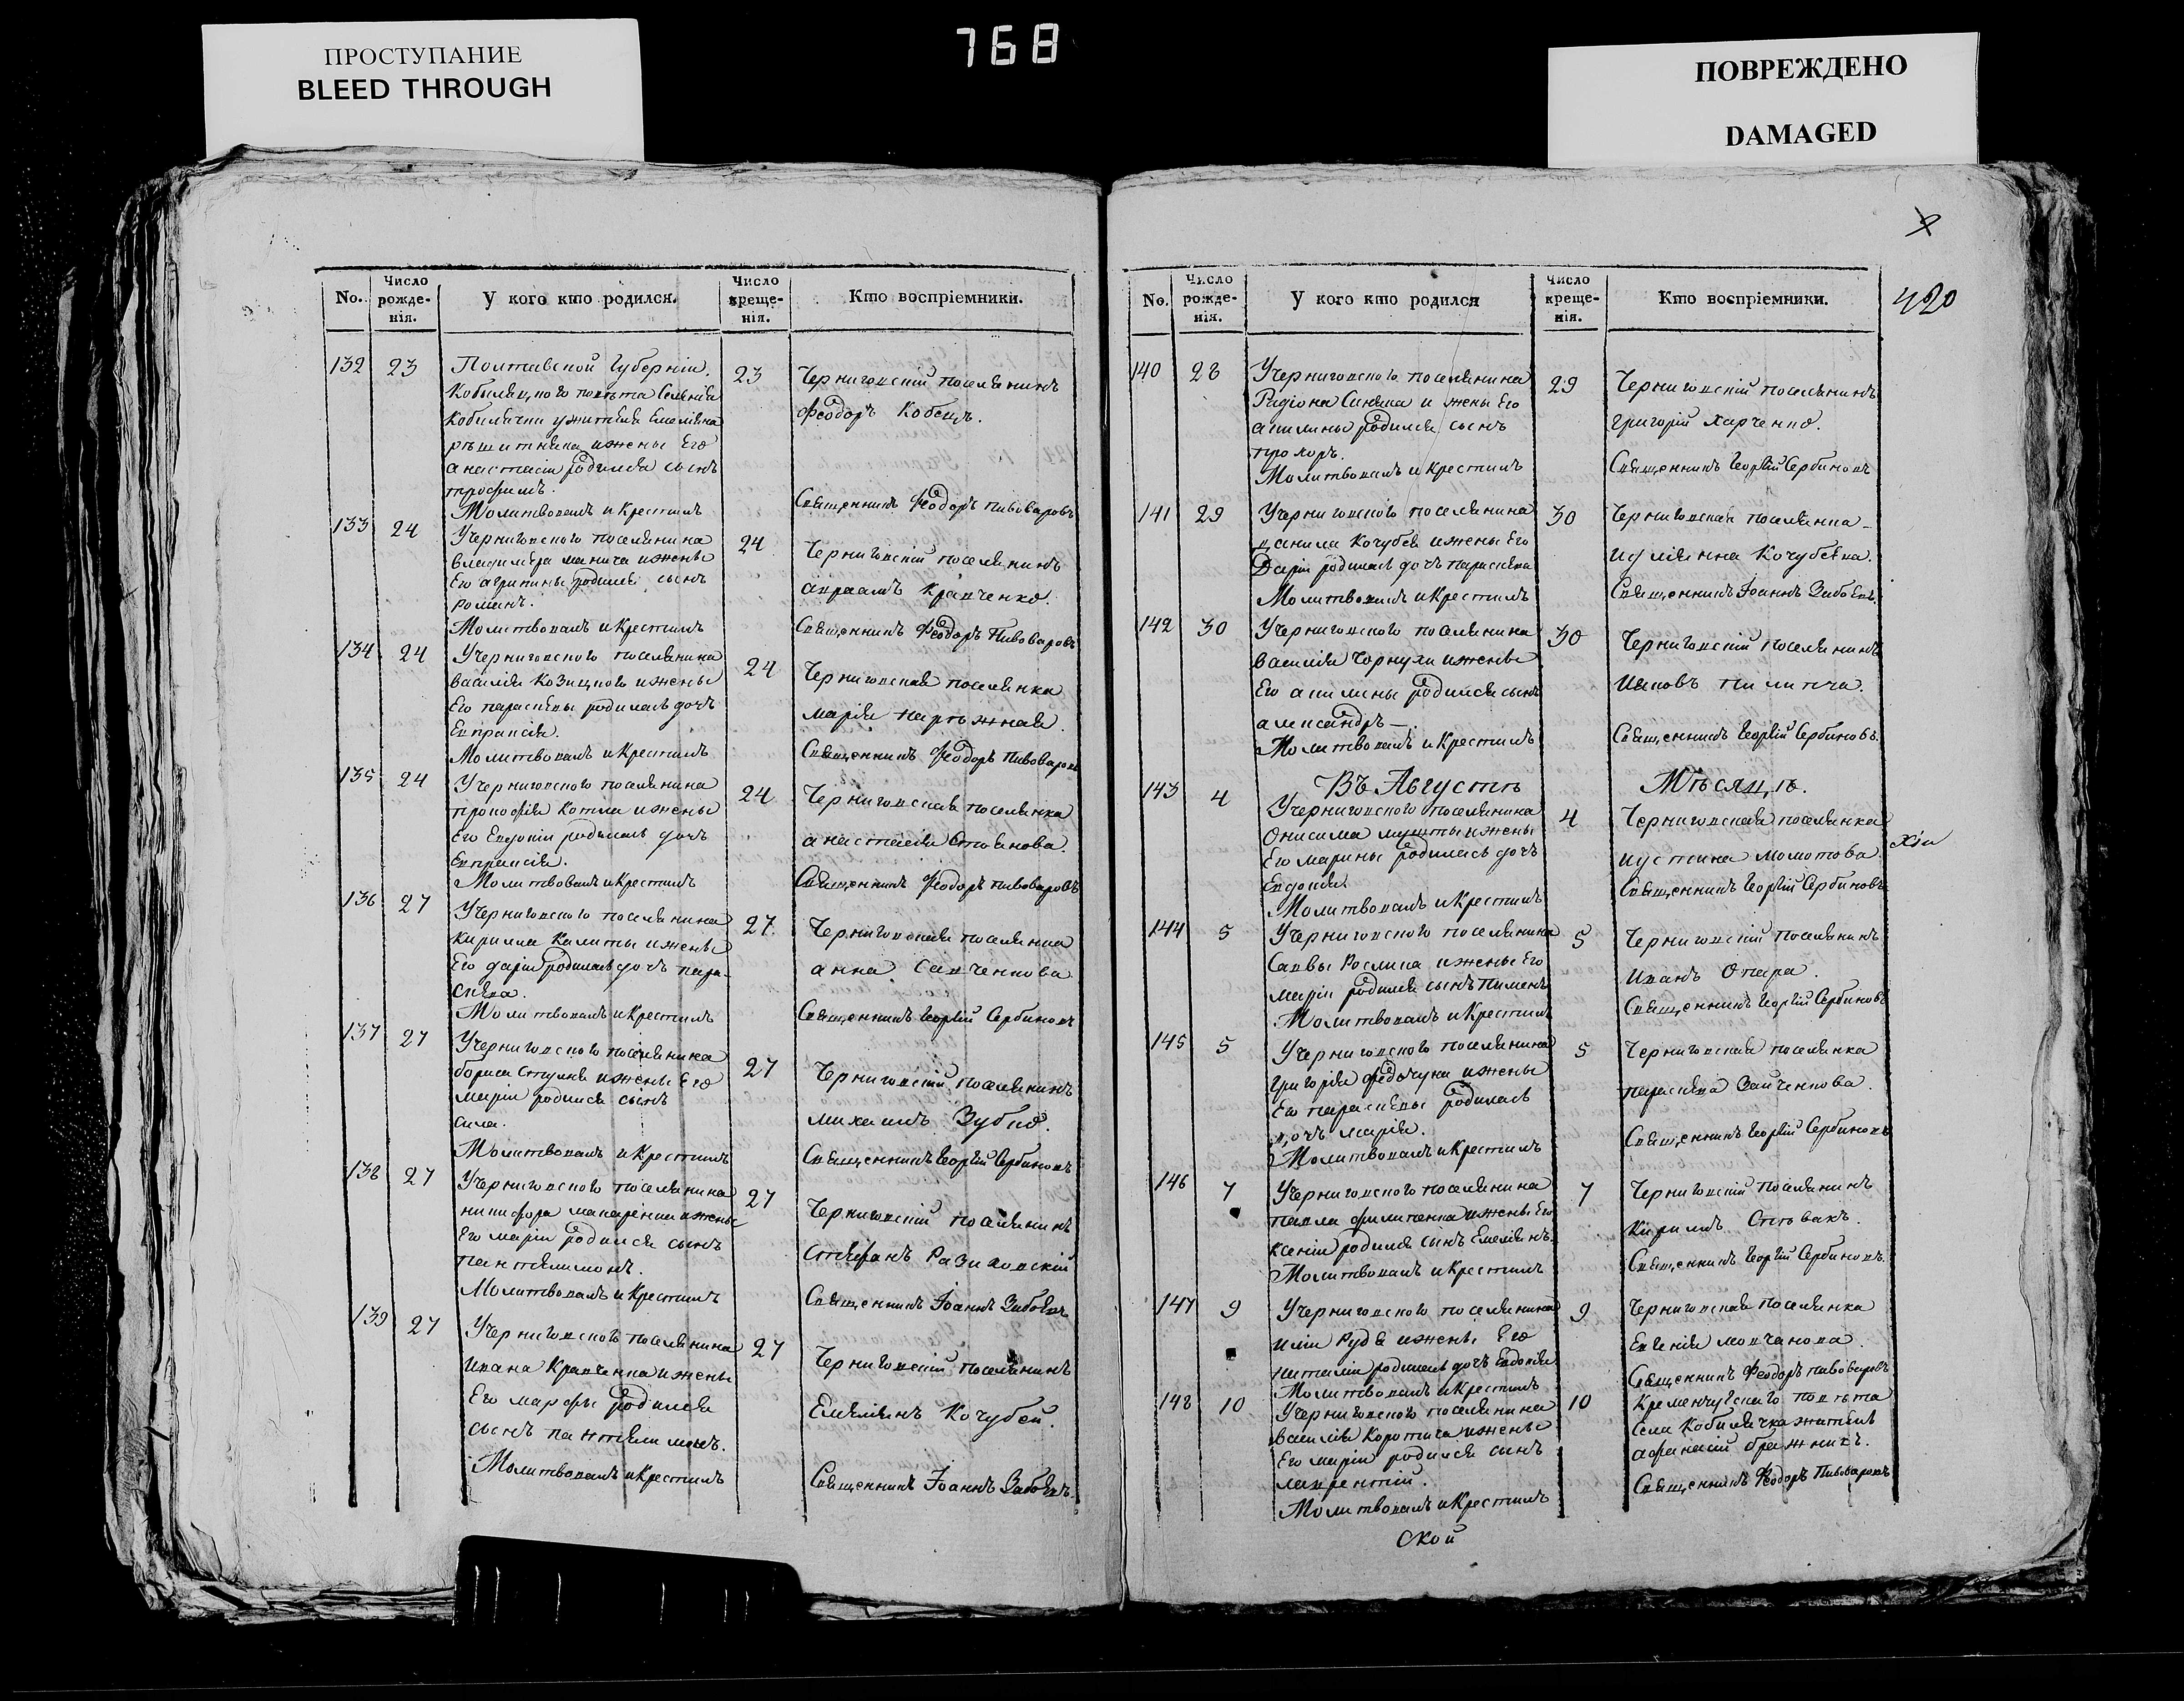 ПРОСТУПАНИЕ
BLEED THROUGH
768
ПОВРЕЖДЕНО
DAMAGED
No.
Число рожде-нія.
У кого кто родился.
Число креще-нія.
Кто воспріемники.
132 23
Полтавской Губерніи.
Кобыляцкого повѣта Селенія
Кобилячки жителя Емеліяна
рѣшитника ижены Его
анастасіи родился сынъ
трофимъ.
Молитвовалъ и Крестилъ
23
Черниговскій поселянинъ
Феодоръ Кобецъ.
Священникъ Феодоръ Пивоваровъ
133 24
Учерниговского поселянина
владимера манича ижены
Его агрипины родился сынъ
романъ.
Молитвовалъ и Крестилъ
24
Черниговскій поселянинъ
авраамъ Кравченко.
Священникъ Феодоръ Пивоваровъ
134 24
Учерниговского поселянина
василія Козицкого ижены
Его параскевы родилась дочь
Евпраксія.
Молитвовалъ и Крестилъ
24
Черниговская поселянка
марія
Священникъ Феодоръ Пивоваровъ
135 24
Учерниговского поселянина
прокофія Котла ижены
Его Евдокіи родилась дочь
Евпраксія.
Молитвовалъ и Крестилъ
24
Черниговская поселянка
анастасія Стоянова.
Священникъ Феодоръ Пивоваровъ
136 27
Учерниговского поселянина
кирилла Калиты ижены
Его даріи родилась дочь пара-
скева.
Молитвовалъ и Крестилъ
27
Черниговская поселянка
анна Савченкова
Священникъ Георгій Сербиновъ
137 27
Учерниговского поселянина
бориса ижены Его
маріи родился сынъ
сила.
Молитвовалъ и Крестилъ
27
Черниговскій поселянинъ
михаилъ Зубко.
Священникъ Георгій Сербиновъ
138 27
Учерниговского поселянина
никифора макаренка ижены
Его маріи родился сынъ
пантелимонъ.
Молитвовалъ и Крестилъ
27
Черниговскій поселянинъ
стефанъ
Священникъ Іоаннъ Забоевъ
139 27
Учерниговского поселянина
ивана Кравченка ижены
Его марфы родился
сынъ пантелимонъ.
Молитвовалъ и Крестилъ
27
Черниговскій поселянинъ
Емелянъ Кочубей.
Священникъ Іоаннъ Забоевъ
420
No.
Число рожде-нія.
У кого кто родился
Число креще-нія.
Кто воспріемники.
140 28
Учерниговского поселянина
Радіона Синяка и жены Его
акилины родился сынъ
прохоръ.
Молитвовалъ и Крестилъ
29
Черниговскій поселянинъ
григорій Харченко.
Священникъ Георгій Сербиновъ
141 29
Учерниговского поселянина
данила Кочубея ижены Его
Даріи родилась дочь параскева
Молитвовалъ и Крестилъ
30
Черниговская поселянка
иуліянна Кочубева.
Священникъ Іоаннъ Забоевъ.
142 30
Учерниговского поселянина
василія Чорнухи ижены
Его акилины родился сынъ
александръ.
Молитвовалъ и Крестилъ
30
Черниговскій поселянинъ
Иаковъ пилипча.
Священникъ Георгій Сербиновъ.
Въ Августѣ Мѣсяцѣ.
143 4
Учерниговского поселянина
Онисима ижены
Его марины родилась дочь
Евдокія.
Молитвовалъ и Крестилъ
4
Черниговская поселянка
иустина молотова
Священникъ Георгій Сербиновъ
144 5
Учерниговского поселянина
Саввы Рослика ижены Его
маріи родился сынъ Пименъ
Молитвовалъ и Крестилъ
5
Черниговскій поселянинъ
Иванъ Опара.
Священникъ Георгій Сербиновъ
145 5
Учерниговского поселянина
григорія федочуки ижены
Его параскевы родилась
дочь марія.
Молитвовалъ и Крестилъ
5
Черниговская поселянка
параскева Зайченкова.
Священникъ Георгій Сербиновъ
146 7
Учерниговского поселянина
павла филипенка ижены Его
ксеніи родился сынъ Емеліянъ.
Молитвовалъ и Крестилъ
7
Черниговскій поселянинъ
Кирилъ Стовакъ.
Священникъ Георгій Сербиновъ.
147 9
Учерниговского поселянина
иліи ижены Его
наталіи родилась дочь Евдокія
Молитвовалъ и Крестилъ
9
Черниговская поселянка
Евгенія мовчанова.
Священникъ Феодоръ Пивоваровъ
148 10
Учерниговского поселянина
василія Коротича ижены
Его маріи родился сынъ
лаврентій.
Молитвовалъ и Крестилъ
10
Кременчугского повѣта
села Кобилячка житель
афанасій бражникъ.
Священникъ Феодоръ Пивоваровъ
ской